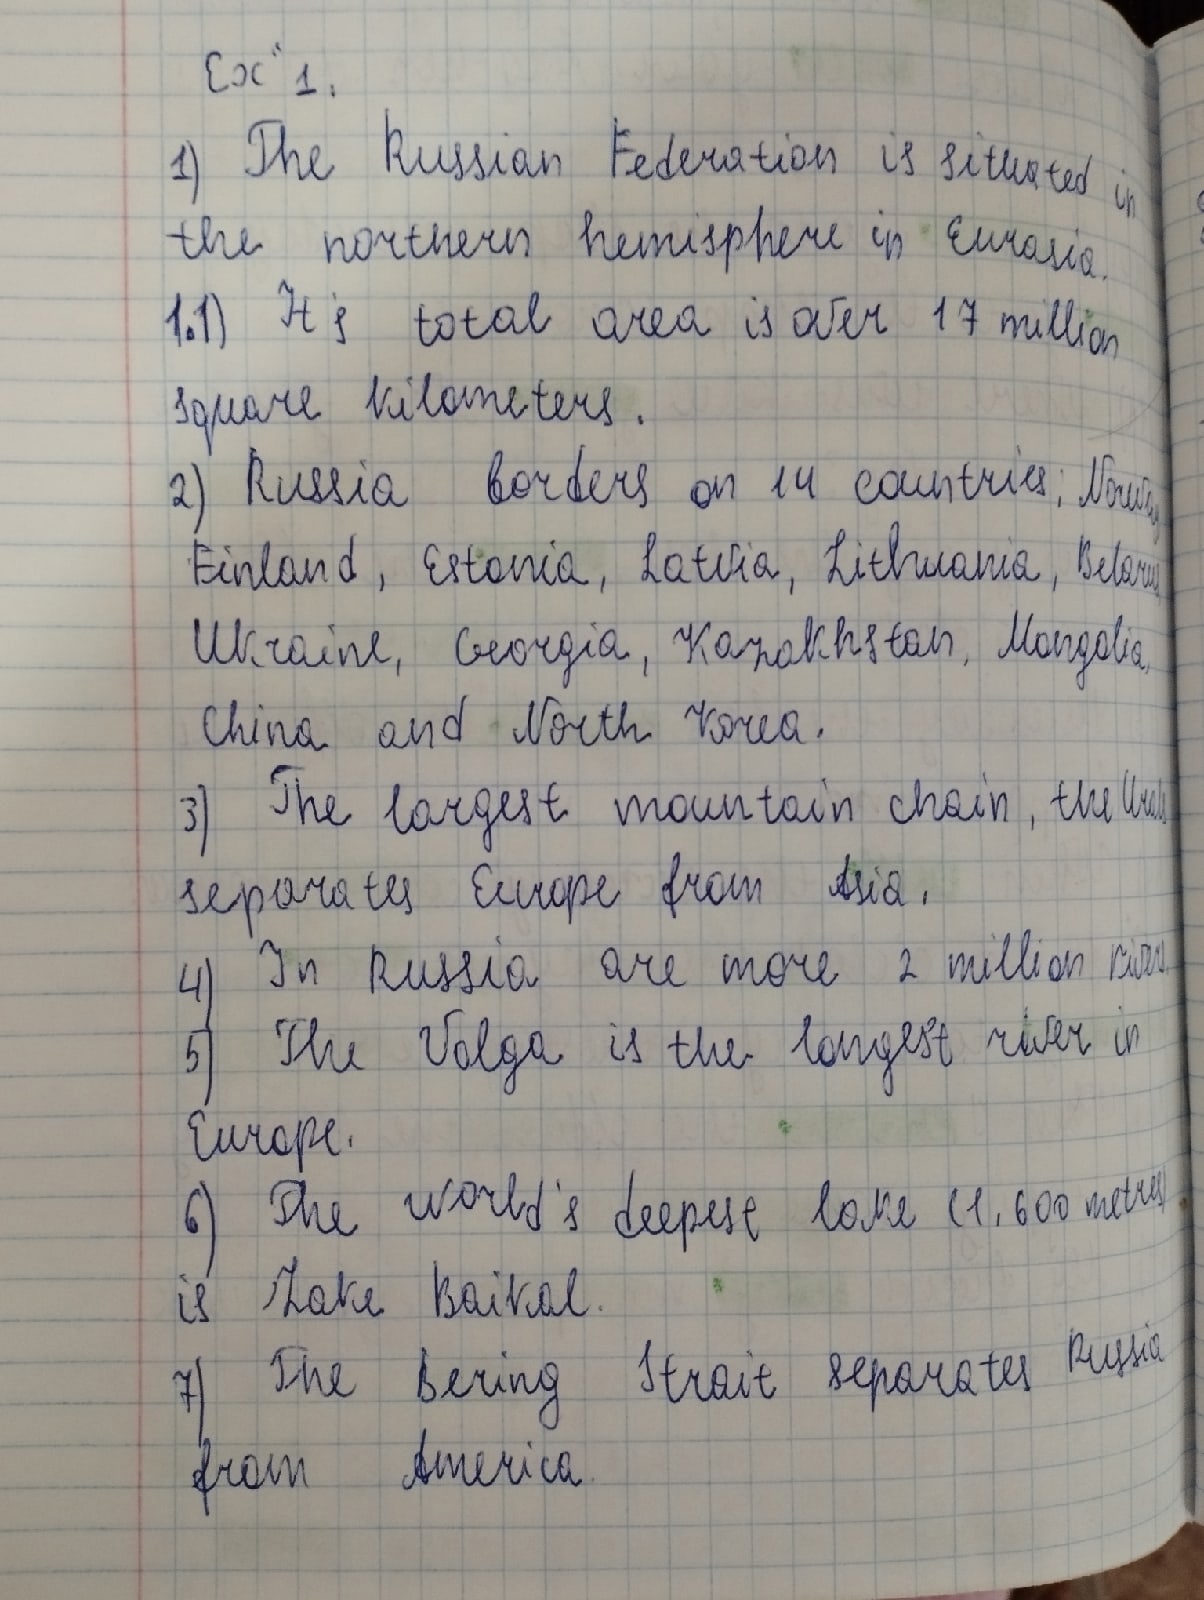 Ex 1.
1) The Russian Federation is situated in
the northern hemisphere in Eurasia.
1.1) It's total area is over 17 million
square kilometers.
2) Russia borders on 14 countries: Norway
Finland, Estonia, Latvia, Lithuania, Belarus
Ukraine, Georgia, Kazakhstan, Mongolia,
China and North Korea.
3) The largest mountain chain, the Urals
separates Europe from Asia.
4) In Russia are more 2 million rivers.
5) The Volga is the longest river in
Europe.
6) The world's deepest lake (1,600 metres)
is Lake Baikal.
7) The Bering Strait separates Russia
from America.